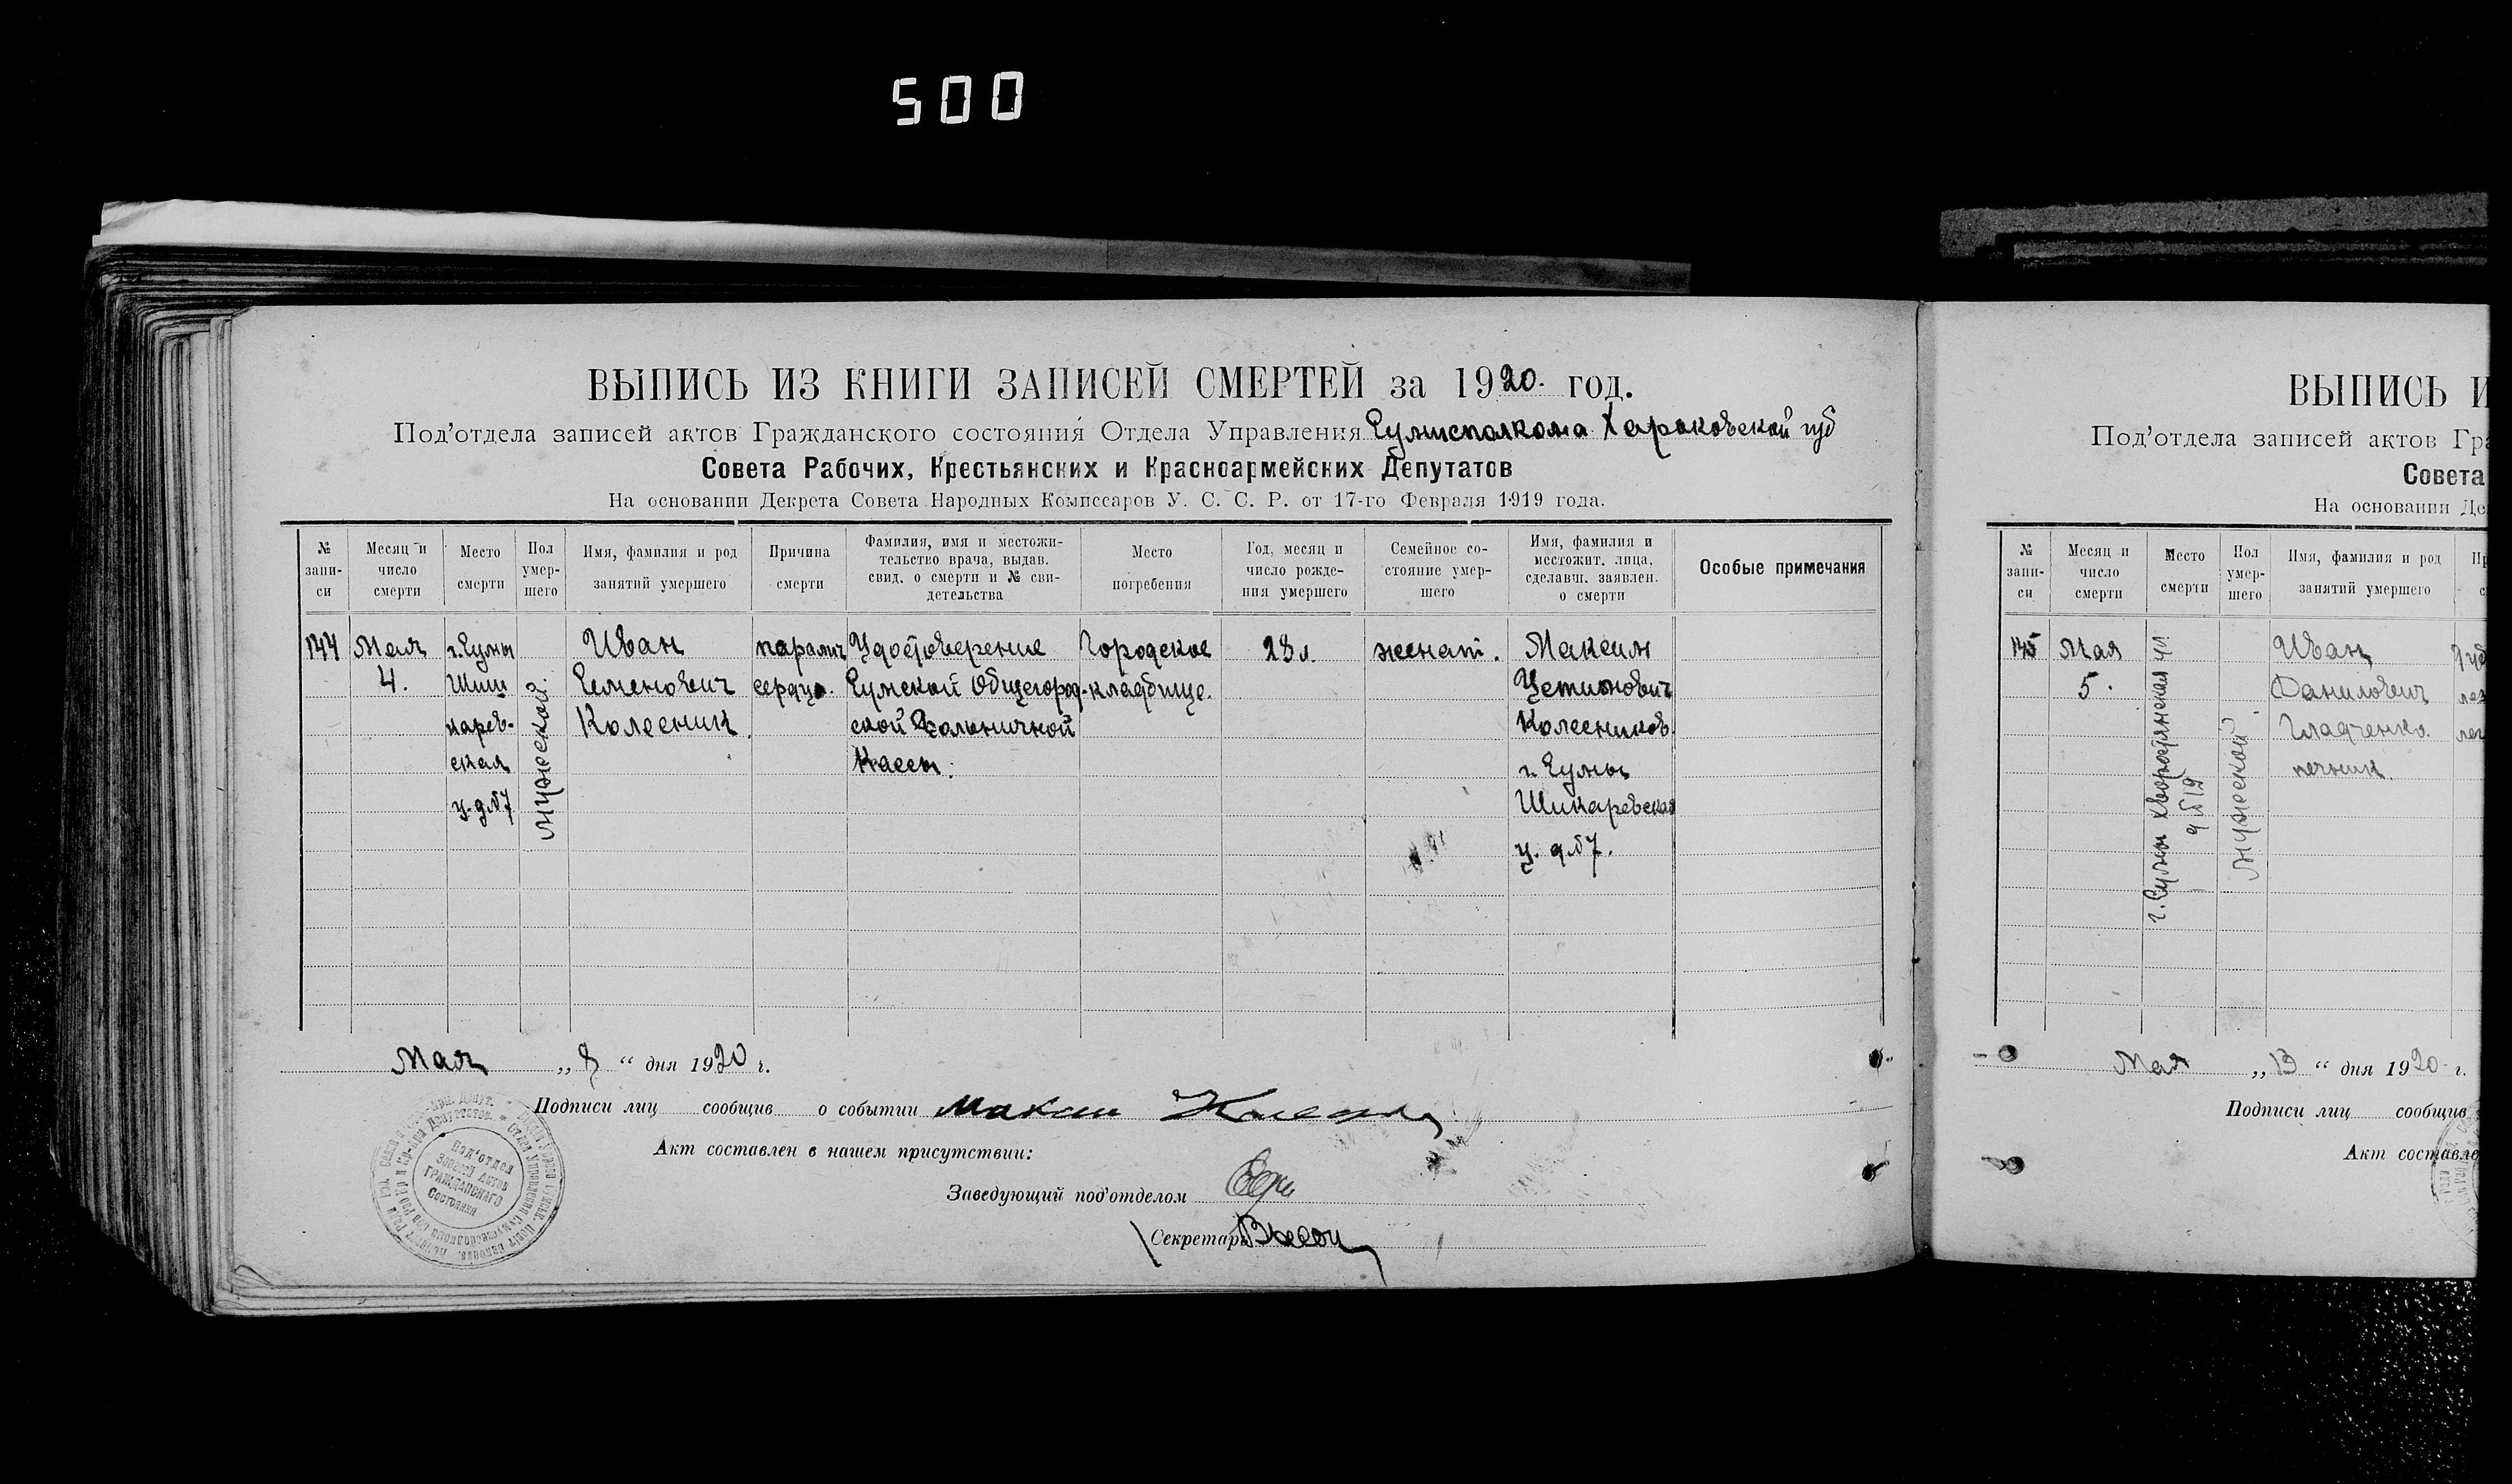 500
ВЫПИСЬ ИЗ КНИГИ ЗАПИСЕЙ СМЕРТЕЙ за 1920 год.
Под'отдела записей актов Гражданского состояния Отдела Управления Сумисполкома Харьковской губ
Совета Рабочих, Крестьянских и Красноармейских Депутатов
На основании Декрета Совета Народных Комиссаров У. С. С. Р. от 17-го Февраля 1919 года.
№ запи-си
Месяц и число смерти
Место смерти
Пол умер-шего
Имя, фамилия и род занятий умершего
Причина смерти
Фамилия, имя и местожи-тельство врача, выдав. свид. о смерти и № сви-детельства
Место погребения
Год, месяц и число рожде-ния умершего
Семейное со-стояние умер-шего
Имя, фамилия и местожит. лица, сделавш. заявлен. о смерти
Особые примечания
144
Мая
4.
г. Сумы
Шиш
карев-
ская
у. д №7
мужеской.
Иван
Семенович
Колесник.
паралич
сердца.
Удостоверение
Сумской Общегород-
ской Больничной
Кассы.
Городское
кладбище.
28 л.
женат.
Максим
Устинович
Колесников
г. Сумы
Шикаревская
у. д №7.
Мая „ 8 “ дня 1920 г.
Подписи лиц сообщив о событии Максим
Акт составлен в нашем присутствии:
Заведующий под'отделом
Секретарь
Под'отдел
Записей Актов
ГРАЖДАНСКАГО
Состояния
ВЫПИСЬ И
Под'отдела записей актов Гра
Совета
На основании Де
№ запи-си
Месяц и число смерти
Место смерти
Пол умер-шего
Имя, фамилия и род занятий умершего
145
Мая
5.
г. Сумы
д №12
мужеской
Иван
Данилович
Гладченко.
печник.
Мая „ 13 “ дня 1920 г.
Подписи лиц сообщив
Акт составле